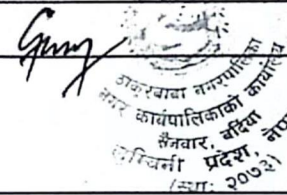 ठाकुरबाबा नगरपालिका
नगर कार्यपालिकाको कार्यालय
सैनवार, बर्दिया
लुम्बिनी प्रदेश, नेपाल
(स्था: २०७३)